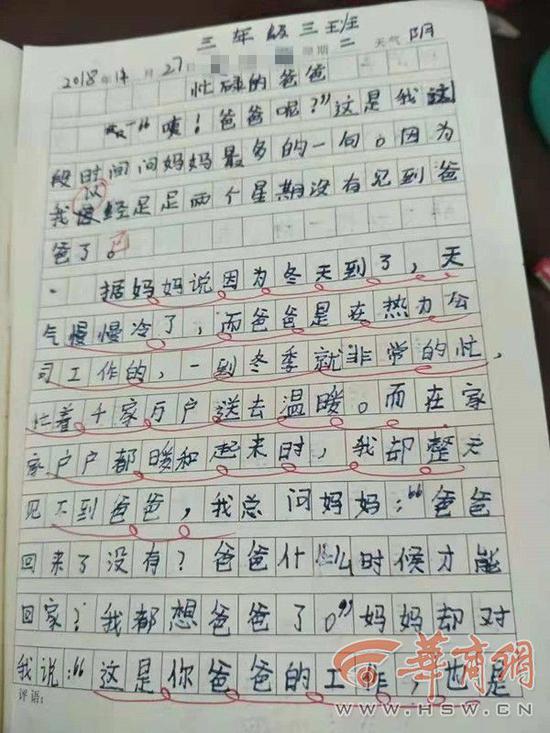 三年级三班
2018年11月27日 星期二 天气 阴
忙碌的爸爸
“咦！爸爸呢？”这是我这
段时间问妈妈最多的一句。因为
我已经足足两个星期没有见到爸
爸了。
据妈妈说因为冬天到了，天
气慢慢冷了，而爸爸是在热力公
司工作的，一到冬季就非常的忙，
忙着千家万户送去温暖。而在家
家户户都暖和起来时，我却整天
见不到爸爸，我总问妈妈：“爸爸
回来了没有？爸爸什么时候才能
回家？我都想爸爸了。”妈妈却对
我说：“这是你爸爸的工作，也是
评语：
华商网
WWW.HSW.CN